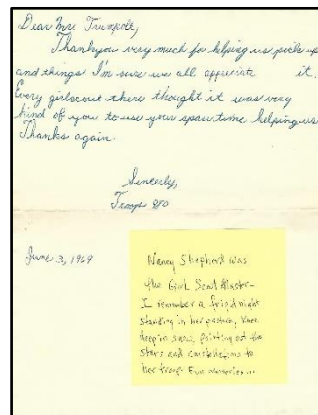 Dear Mr. Trumpolt,
Thankyou very much for helping us pick up
and things I'm sure we all appreciate it.
Every girlscout there thought it was very
kind of you to use your spare time helping us
Thanks again.
Sincerly,
Troops 870
June 3, 1969
Nancy Shepherd was
the Girl Scout Master-
I remember a frigid night
standing in her pasture, knee
deep in snow, pointing out the
stars and constellations to
her troop. Fun memories...